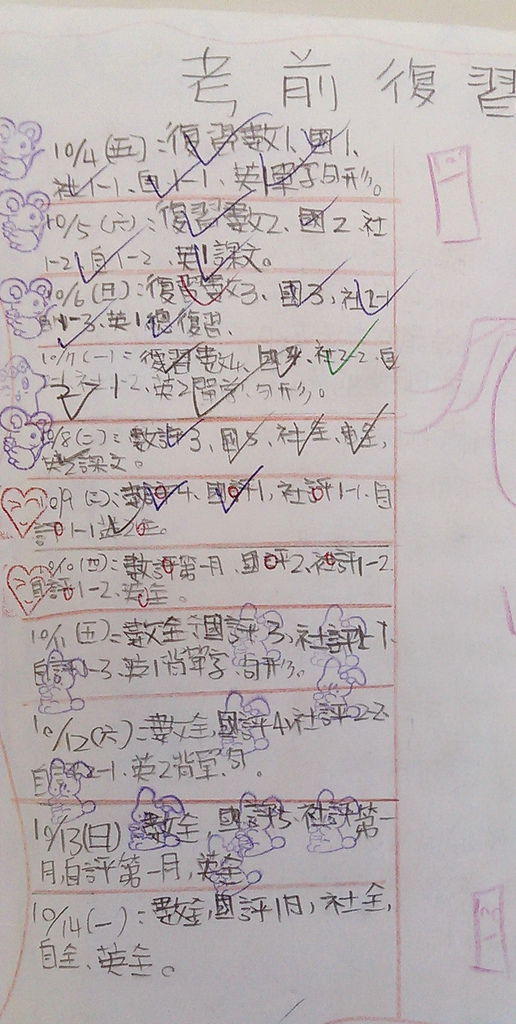 考前復習
10/4(五):復習數1、國1、
社1-1、自1-1、英1單字句形。
10/5(六):復習數2、國2、社
1-2、自1-2、英1課文。
10/6(日):復習數3、國3、社2-1
自1-3、英1總復習、
10/7(一):復習數4、國4、社2-2、自
2-1、英2單字、句形。
10/8(二):數評3、國5、社全、自全,
英2課文。
10/9(三):數評4、國評1、社評1-1、自
評1-1
10/10(四):數評第一月、國評2、社評1-2
自評1-2、英全。
10/11(五):數全、國評3、社評2-1、
自評1-3、英1背單字、句形。
10/12(六):數全,國評4、社評2-2、
自評2-1、英2背單、句。
10/13(日) 數全,國評5、社評第一
月,自評第一月,英全
10/14(一):數全,國評1月,社全,
自全、英全。